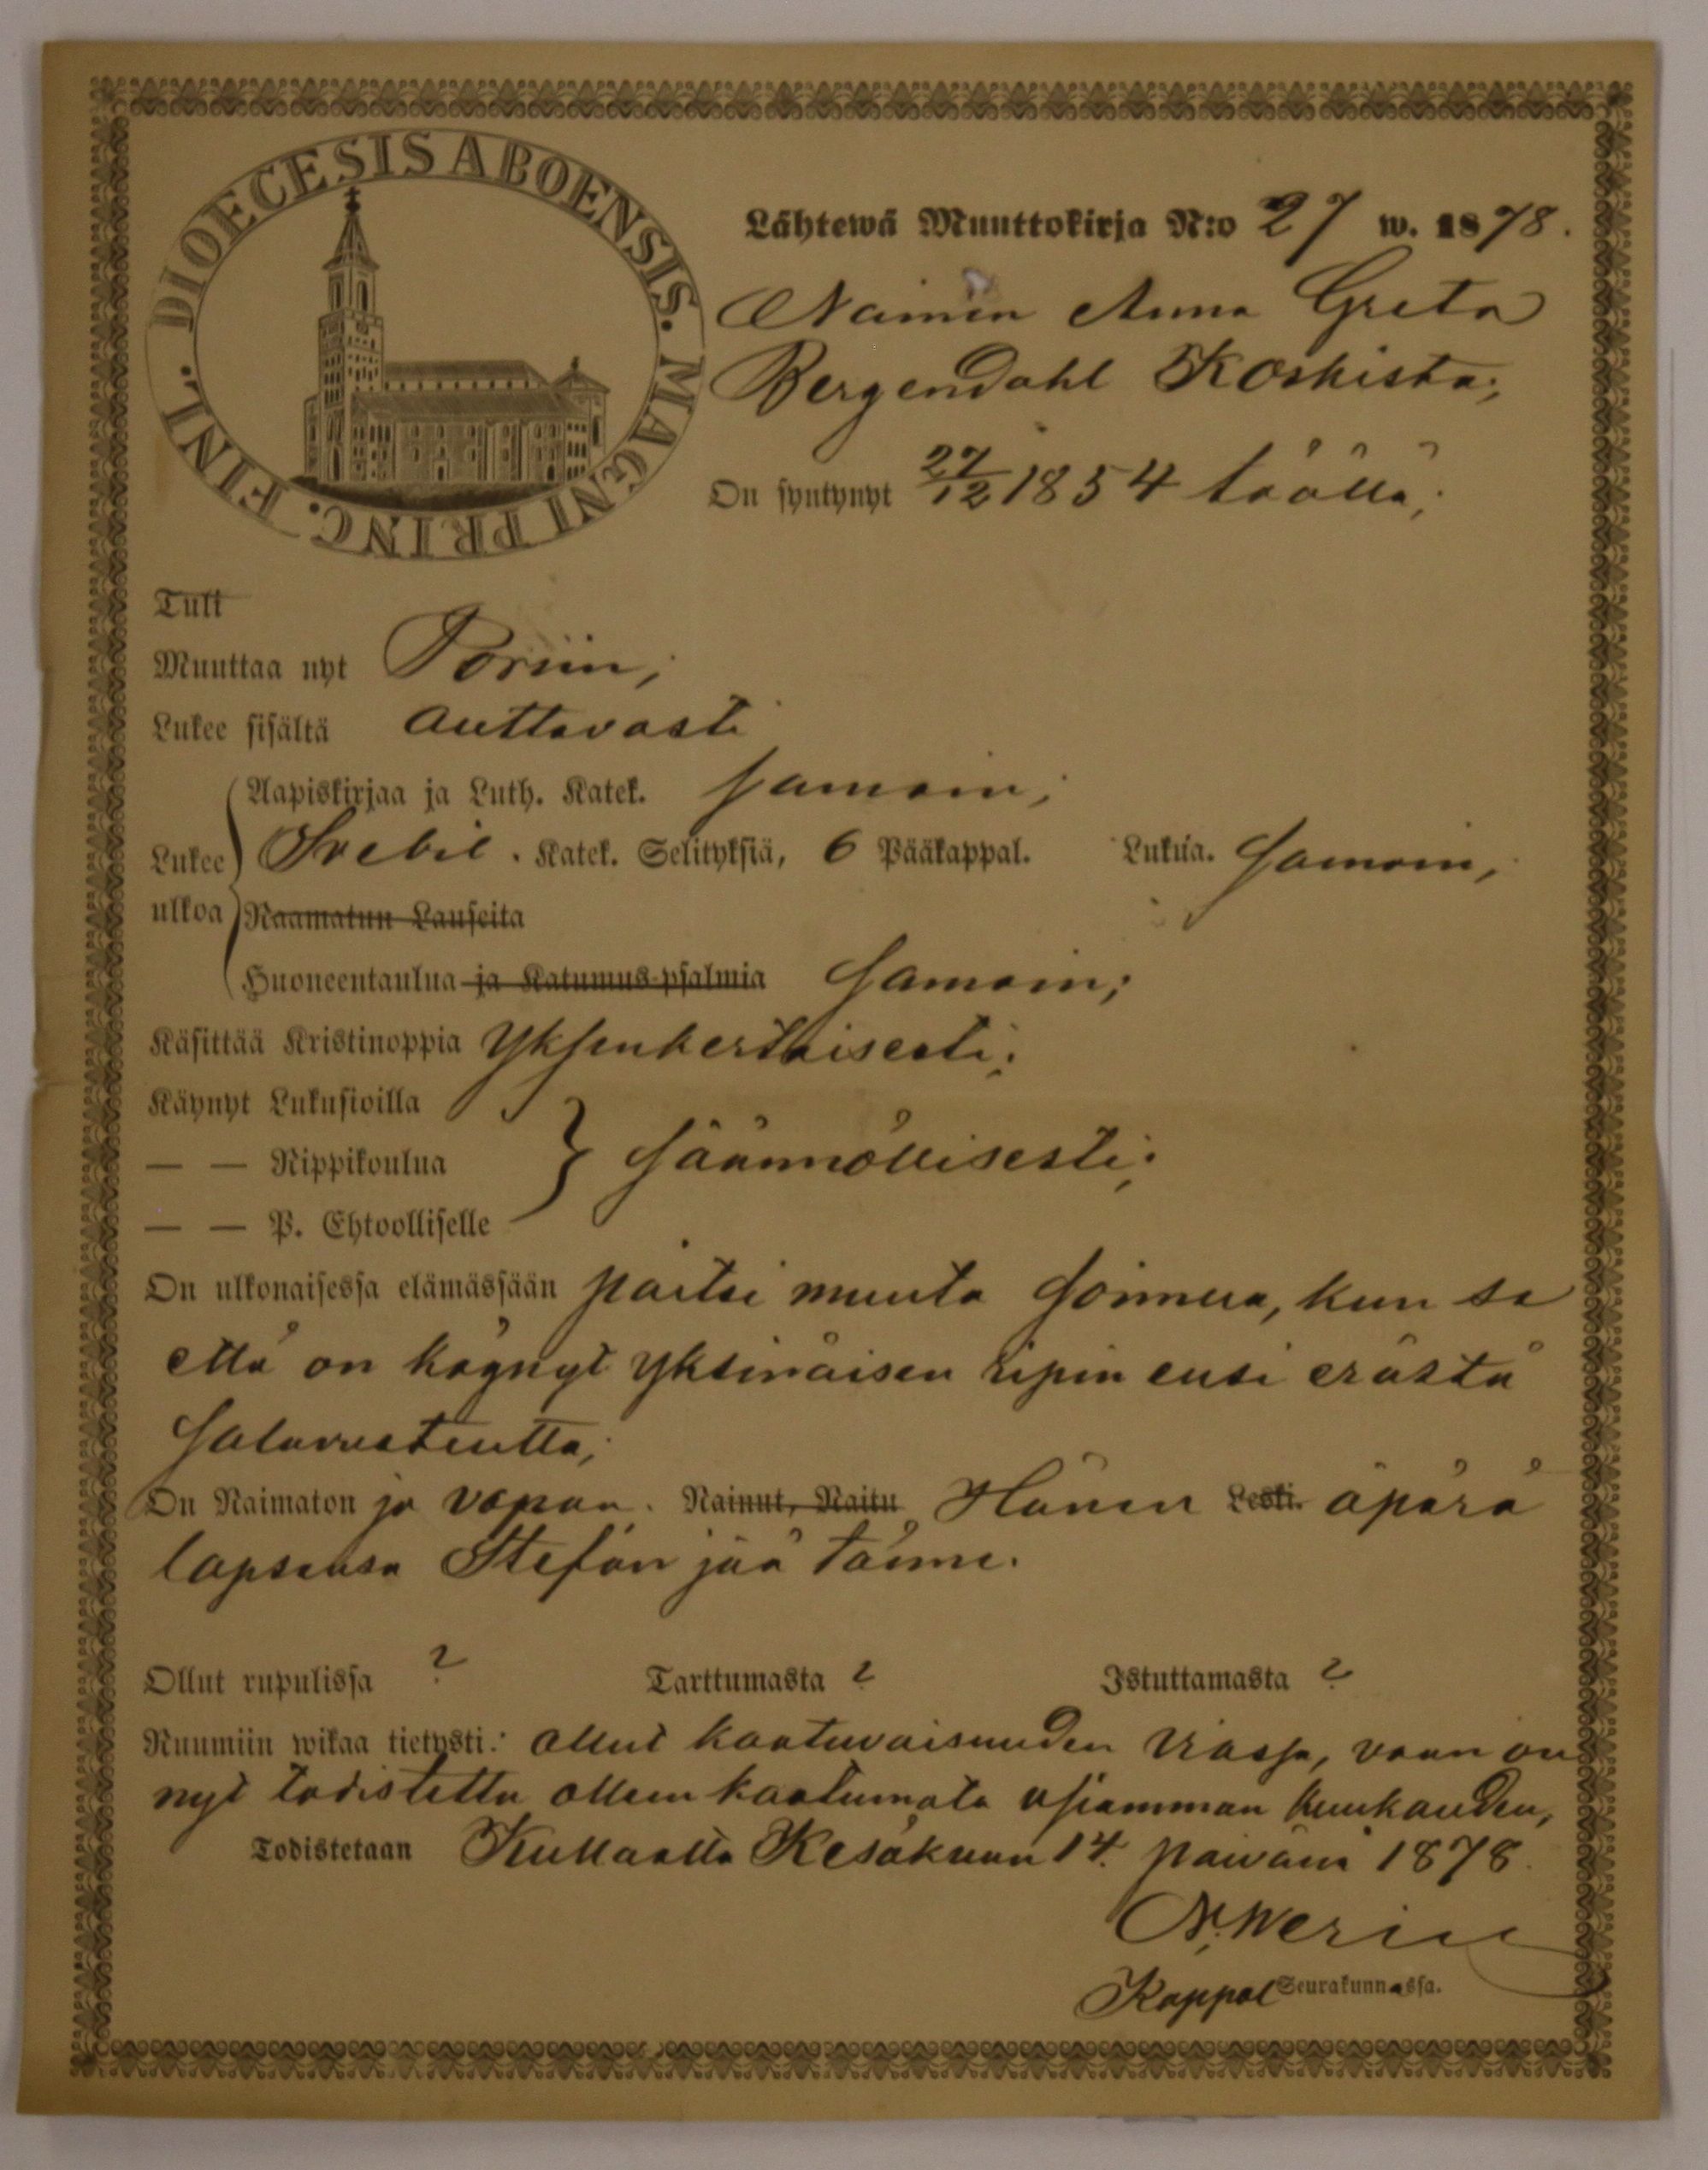 DIOECESIS ABOENSIS. MAGNI PRINC. FINL.
Lähtewä Muuttokirja N:o 27 w. 1878.
Naimen Anna Greta
Bergendahl Koskista;
On syntynyt 27/12 1854 täällä;
Tuli
Muuttaa nyt Poriin;
Lukee sisältä auttavasti
Aapiskirjaa ja Luth. Katek. samoin;
Lukee ulkoa
Svebil. Katek. Selityksiä, 6 Pääkappal. Lukua. samoin,
Raamatun Lauseita
Huoneentaulua ja Katumus-psalmia samoin;
Käsittää Kristinoppia yksinkertaisesti;
Käynyt Lukusioilla
— — Rippikoulua säännöllisesti;
— — P. Ehtoolliselle
On ulkonaisessa elämässään paitsi muuta soimua, kun se
että on käynyt yksinäisen ripin ensi erästä
salavuoteutta;
On Naimaton ja vapaa. Nainut, Naitu Hänen Leski. äpärä
lapsensa Stefan jää tänne.
Ollut rupulissa ? Tarttumasta ? Istuttamasta ?
Ruumiin wikaa tietysti: ollut kaatuvaisuuden viassa, vaan on
nyt todistettu olleen kaatumata usiamman kuukauden,
Todistetaan Kullaalla Kesäkuun 14. päivänä 1878.
Kappal Seurakunnassa.